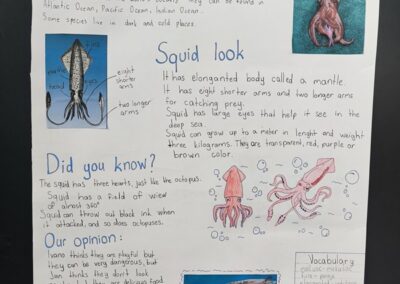 Atlantic Ocean, Pacific Ocean, Indian Ocean...
Some species live in dark and cold places.
Squid look
fins
mantle
head
eyes
eight shorter arms
two longer arms
It has elonganted body called a mantle.
It has eight shorter arms and two longer arms
for catching prey.
Squid has large eyes that help it see in the
deep sea.
Squid can grow up to a meter in lenght and weight
three kilograms. They are transparent, red, purple or
brown color.
Did you know?
The squid has three hearts, just like the octopus.
Squid has a field of view
of almost 360°
Squid can throw out black ink when
it attacked, and so does octopuses.
Our opinion:
Ivano thinks they are playful but
they can be very dangerous, but
thinks they don't look
they are delicious food
Vocabulary